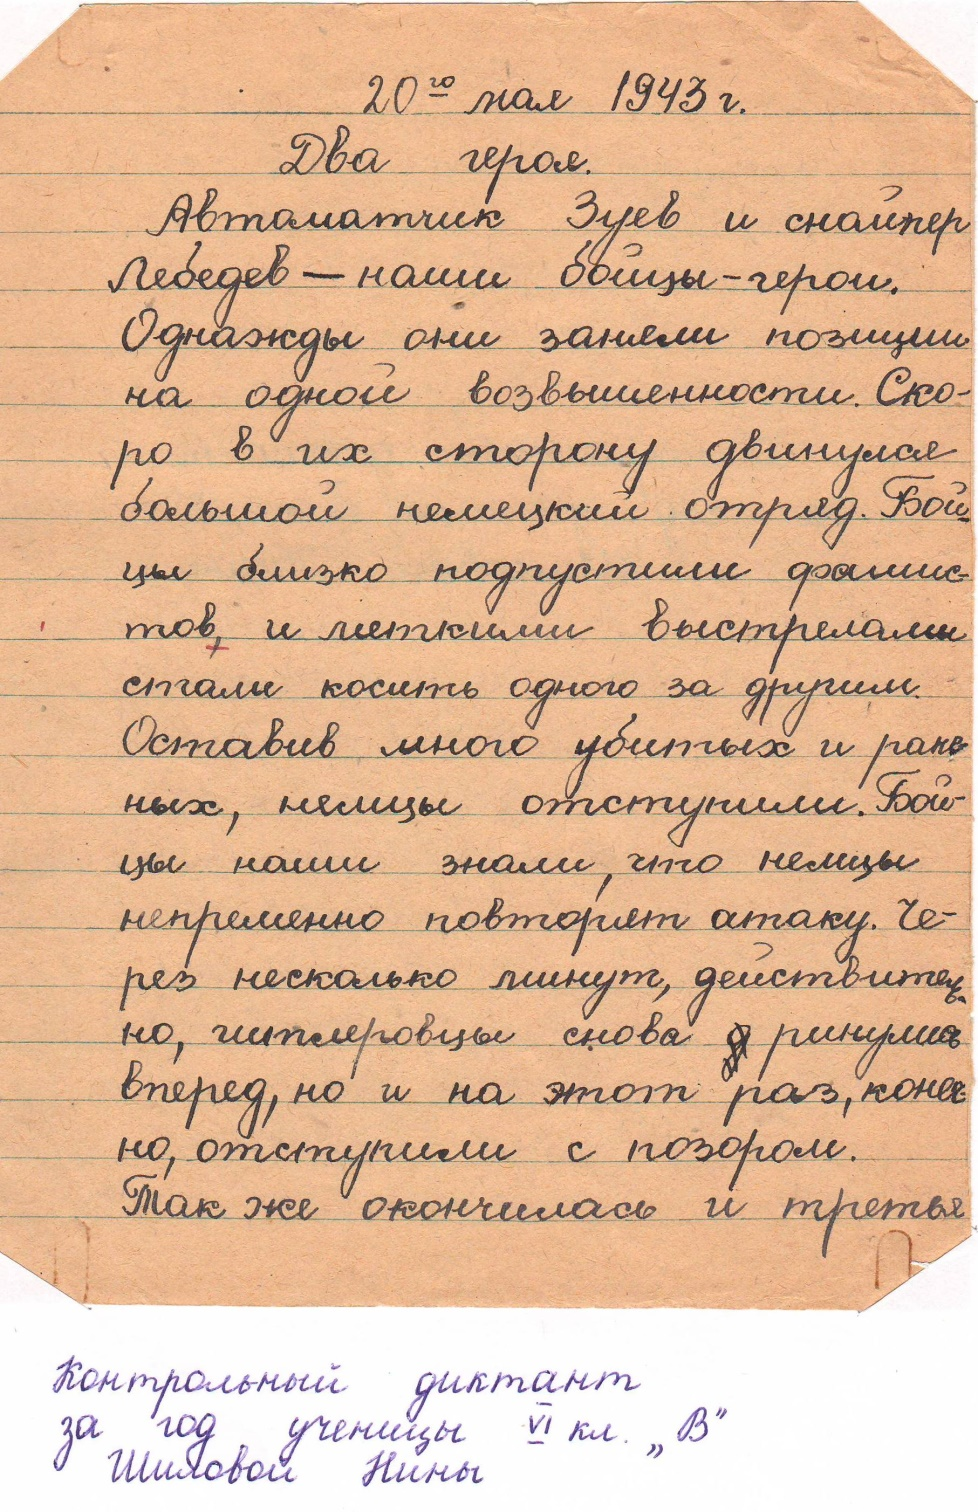 20го мая 1943 г.
Два героя.
Автоматчик Зуев и снайпер
Лебедев — наши бойцы-герои.
Однажды они заняли позиции
на одной возвышенности. Ско-
ро в их сторону двинулся
большой немецкий отряд. Бой-
цы близко подпустили фашис-
тов, и меткими выстрелами
стали косить одного за другим.
Оставив много убитых и ране-
ных, немцы отступили. Бой-
цы наши знали, что немцы
непременно повторят атаку. Че-
рез несколько минут, действитель-
но, гитлеровцы снова ринулись
вперед, но и на этот раз, конеч-
но, отступили с позором.
Так же окончилась и третья
Контрольный диктант
за год ученицы VI кл. „В"
Шиловой Нины